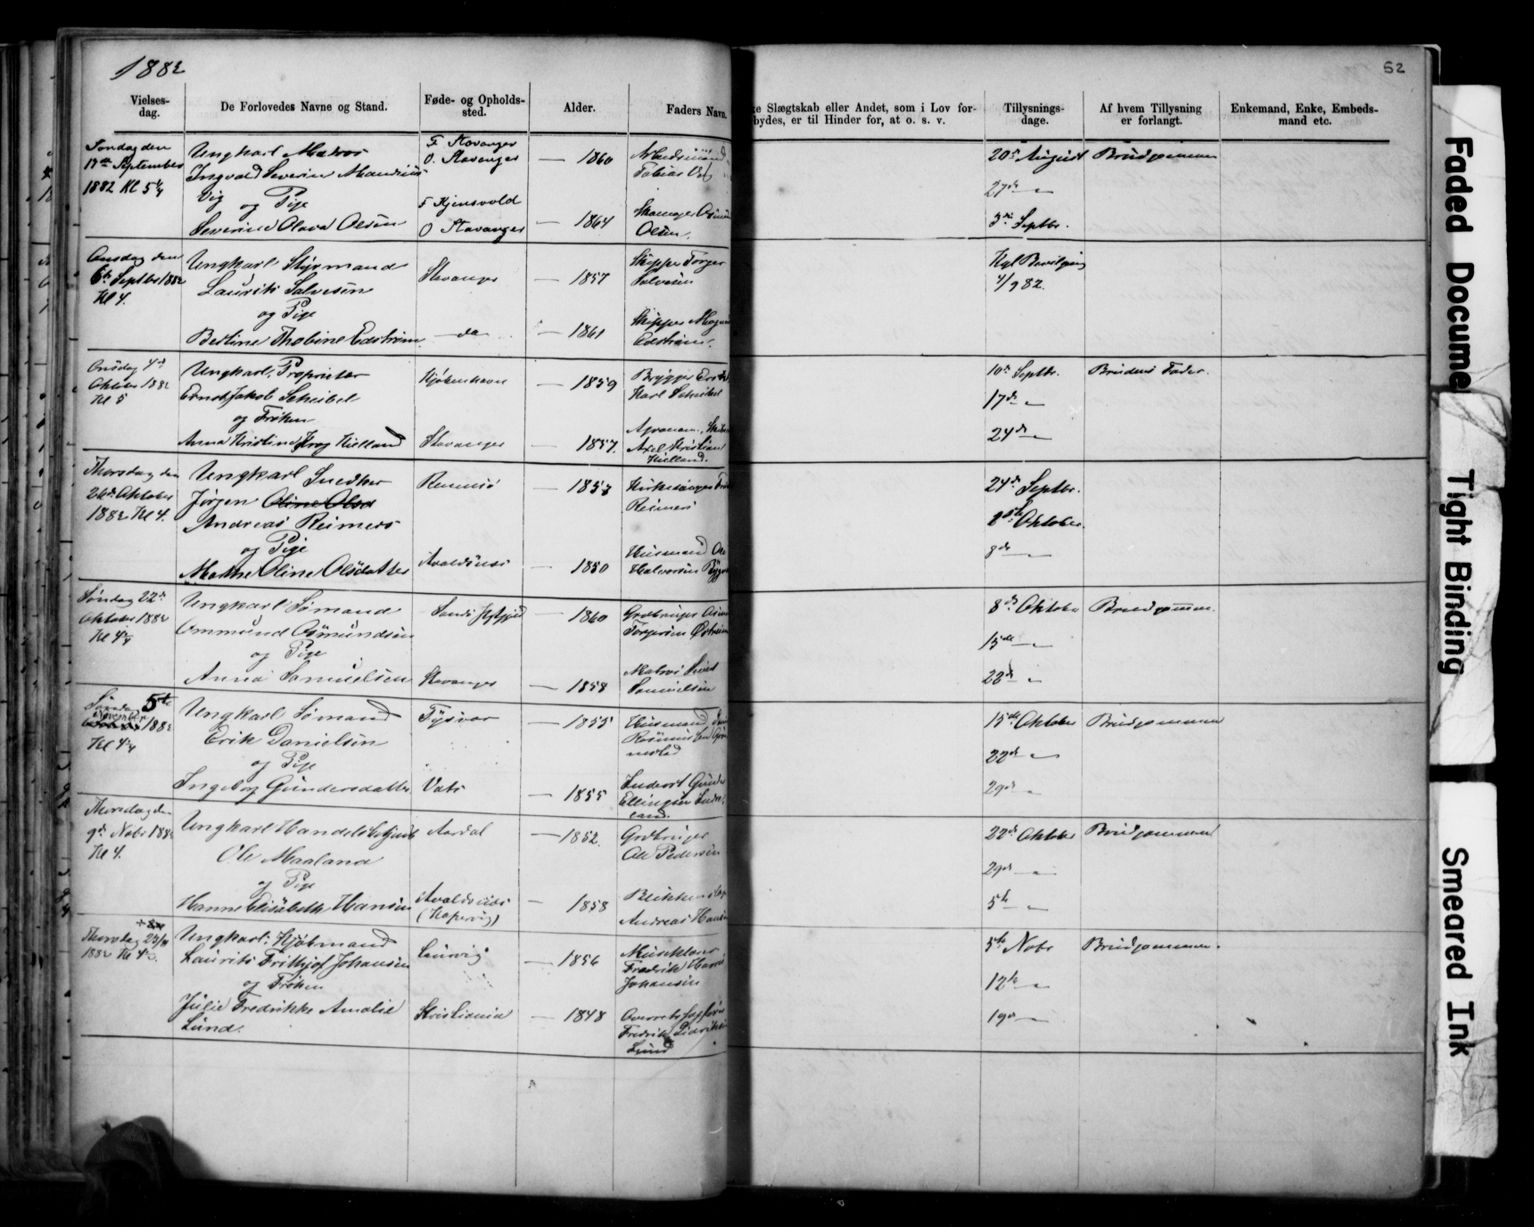 1882
52
Vielses-
dag.
De Forlovedes Navne og Stand.
Føde- og Opholds-
sted.
Alder.
Faders Navn.
ke Slægtskab eller Andet, som i Lov for-
bydes, er til Hinder for, at o. s. v.
Tillysnings-
dage.
Af hvem Tillysning
er forlangt.
Enkemand, Enke, Embeds-
mand etc.
Søndag den
17de September
1882 Kl 5¼
Ungkarl Matros
Ingvald Severin Mandrius
Vig
og Pige
Severine Olava Olsen
F Stavanger
O. Stavanger
F Hjensvold
O Stavanger
— 1860
— 1864
Tobias Vig
Olsen.
20de August
27de — "
3die Septbr.
Brudgommen
Onsdag den
6te Septbr 1882
Kl 4.
Ungkarl Styrmand
Laurits Salvesen
og Pige
Bertine Thobine Edstrøm
Stavanger
— do
— 1857
— 1861
Skipper Torger
Salvesen
Skipper
Edstrøm.
Kgl Bevilgning
4/9 82.
Onsdag 4de
Oktober 1882
Kl 5
Ungkarl, Proprietær
Ernst Jakob Scheibel
og Frøken
Anna Kristine Krog Kielland
Kjøbenhavn
Stavanger
— 1859
— 1857.
Karl Scheibel
Axel Kristian
Kielland.
10de Septbr.
17de — "
24de — "
Brudens Fader.
Thorsdag den
26de Oktober
1882 Kl 4.
Ungkarl Snedker
Jørgen Oline Olsd
Andreas Reimers
og Pige
Malene Oline Olsdatter
Rennesø
Avaldsnes
— 1857
— 1850
Kirkesanger
Reimers
Husmand Ole
Halvorsen
24de Septbr.
1ste Oktober
8de — "
Søndag 22de
Oktober 1882
Kl 4¼
Ungkarl Sømand
Ommund Osmundsen
og Pige
Anna Samuelsen
Stavanger
— 1860
— 1858
Grdbruger
Torgersen
Matros
Samuelsen
8de Oktober
15de — "
22de — "
Brudgommen.
Søndag 5te
November 1882
Kl 4¼
Ungkarl Sømand
Erik Danielsen
og Pige
Ingeborg Gundersdatter
Tysvær
Vats
— 1855
— 1855
Husmand
Inderst Gunder
Ellingsen
15de Oktober
22de — "
29de — "
Brudgommen
Thorsdag den
9de Novbr 1882
Kl 4.
Ungkarl Handelsbetjent
Ole Maaland
og Pige
Hanne Elisabeth Hansen
Aardal
Avaldsnes
(Kopervig)
— 1852.
— 1858
Grdbruger
Ole Pedersen
Andreas Hansen
22de Oktober
29de — "
5te — "
Brudgommen
Thorsdag 23/11
1882 Kl 4
Ungkarl, Kjøbmand
Laurits Frithjof Johansen
og Frøken
Julie Fredrikke Amalie
Lund.
Laurvig
Kristiania
— 1856
— 1848
Fredrik
Johansen
Overretssagfører
Fredrik Didriksen
Lund
5te Novbr
12te — "
19de — "
Brudgommen.
Faded Document
Tight Binding
Smeared Ink